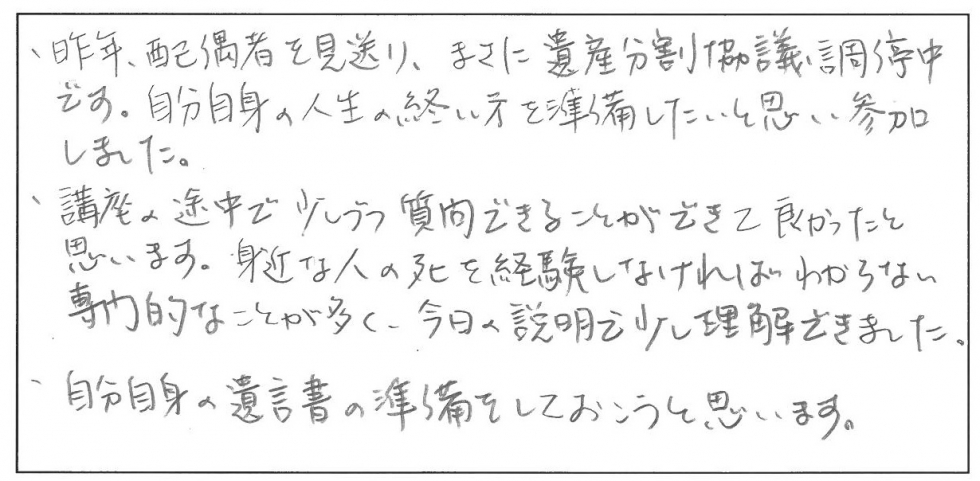 、昨年、配偶者を見送り、まさに遺産分割協議、調停中
です。自分自身の人生の終い方を準備したいと思い参加
しました。
、講座の途中で少しづつ質問できることができて良かったと
思います。身近な人の死を経験しなければわからない
専門的なことが多く、今日の説明で少し理解できました。
、自分自身の遺言書の準備をしておこうと思います。